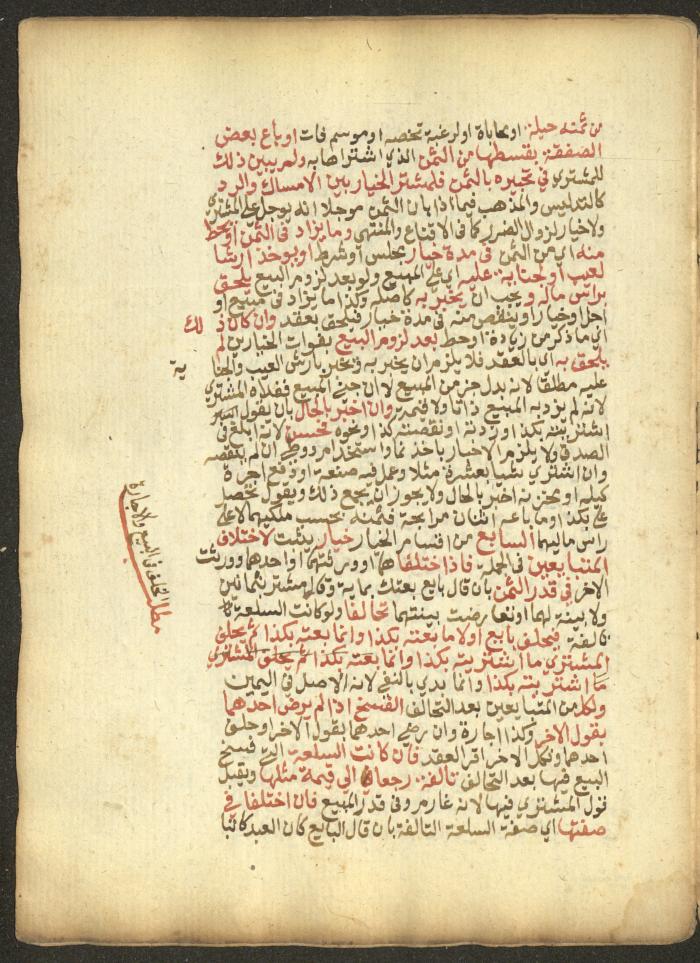 من ثمنه حيلة او محاباة او لرغبة تخصه او موسم فات او باع بعض
الصفقة بقسطها من الثمن الذي اشتراها به ولم يبين ذلك
للمشتري في تخبيره بالثمن فلمشتر الخيار بين الامساك والرد
كالتدليس والمذهب فيما اذا بان الثمن موجلا انه يوجل على المشتري
ولا خيار لزوال الضرر كما في الاقناع والمنتهى وما يزاد في الثمن او يحط
منه اي من الثمن في مدة خيار مجلس او شرط او يوخذ ارشا
لعيب او لجناية عليه اي على المبيع ولو بعد لزوم البيع يلحق
براس ماله ويجب ان يخبر به كاصله وكذا ما يزاد في مبيع او
اجل او خيار او ينقص منه في مدة خيار فيلحق بعقد وان كان ذ لك
اي ما ذكر من زيادة او حط بعد لزوم البيع بفوات الخيارين لم
يلحق به اي بالعقد فلا يلزم ان يخبر به ويخبر بارش العيب والجنا ية
عليه مطلقا لانه بدل جزء من المبيع لا ان جنى المبيع ففداه المشتري
لانه لم يزد به المبيع ذاتا ولا قيمة وان اخبر بالحال بان يقول
اشتريته بكذا وزدته او نقصته كذا ونحوه فحسن لانه ابلغ في
الصدق ولا يلزم الاخبار باخذ نما واستخدام ووطي ان لم ينقصه
وان اشترى شيا بعشرة مثلا وعمل فيه صنعة او دفع اجرة
كيله او مخزنه اخبر بالحال ولا يجوز ان يجمع ذلك ويقول تحصل
علي بكذا وما باعه اثنان مرابحة فثمنه بحسب ملكيهما لا على
راس ماليهما السابع من اقسام الخيار خيار يثبت لاختلاف
المتبايعين في الجملة فاذا اختلفا هما او ورثتهما او احدهما وورثت
الاخر في قدر الثمن بان قال بايع بعتك بماية وقال مشتر بثمانين
ولا بينة لهما او تعارضت بينتهما تحالفا ولو كانت السلعة
تالفة فيحلف بايع اولا ما بعته بكذا وانما بعته بكذا ثم يحلف
المشتري ما اشتريته بكذا وانما بعته بكذا ثم يحلف المشتري
ما اشتريته بكذا وانما بدي بالنفي لانه الاصل في اليمين
ولكل من المتبايعين بعد التحالف الفسخ اذا لم يرض احدهما
بقول الاخر وكذا اجارة وان رضي احدهما بقول الاخر او حلف
احدهما ونكل الاخر اقر العقد فان كانت السلعة التي فسخ
البيع فيها بعد التحالف تالفة رجعا الى قيمة مثلها ويقبل
قول المشتري فيها لانه غارم وفي قدر المبيع فان اختلفا في
صفتها اي صفة السلعة التالفة بان قال البايع كان العبد كاتبا
مطلب الحلف في البيع والاجارة